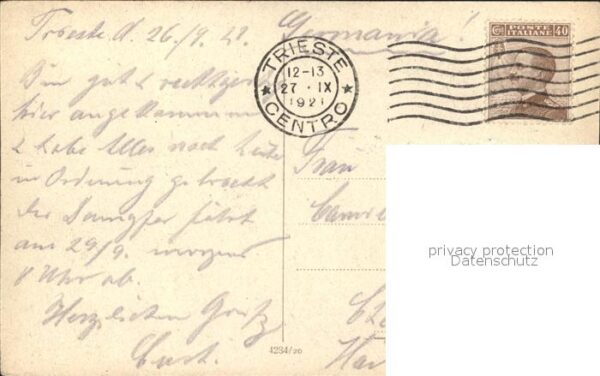 Trieste d. 26./9. 21. Germania!
POSTE ITALIANE
Cmi 40
TRIESTE
12-13
27 · IX
1921
CENTRO
Bin gut & rechtzeitig
hier angekommen
& habe Alles noch heute
in Ordnung gebracht
der Dampfer fährt
am 29/9. morgens
8 Uhr ab.
Herzlichen Gruß
Curt.
Frau
4234/20
privacy protection
Datenschutz